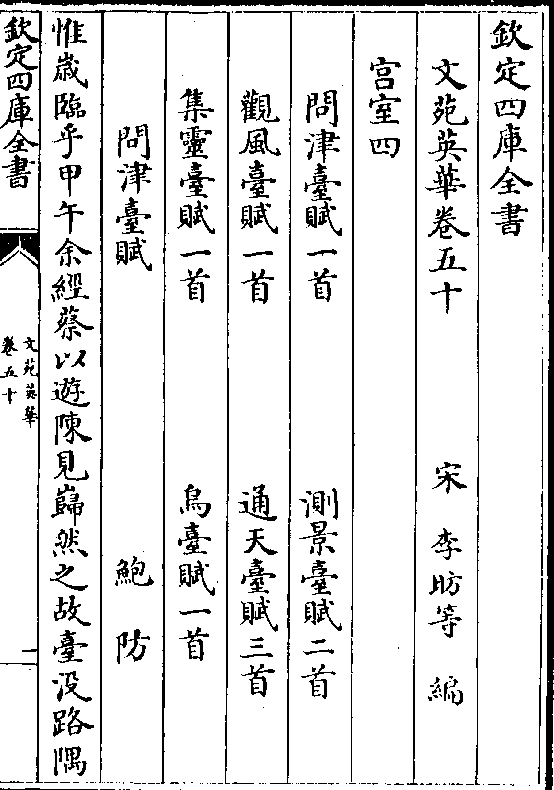 欽定四庫全書
文苑英華卷五十
宋 李昉等 編
宫室四
問津臺賦一首 測景臺賦二首
觀風臺賦一首 通天臺賦三首
集靈臺賦一首 烏臺賦一首
問津臺賦 鮑防
惟歳臨乎甲午余經蔡以遊陳見巋然之故臺没路隅
欽定四庫全書
文苑英華
卷五十
一